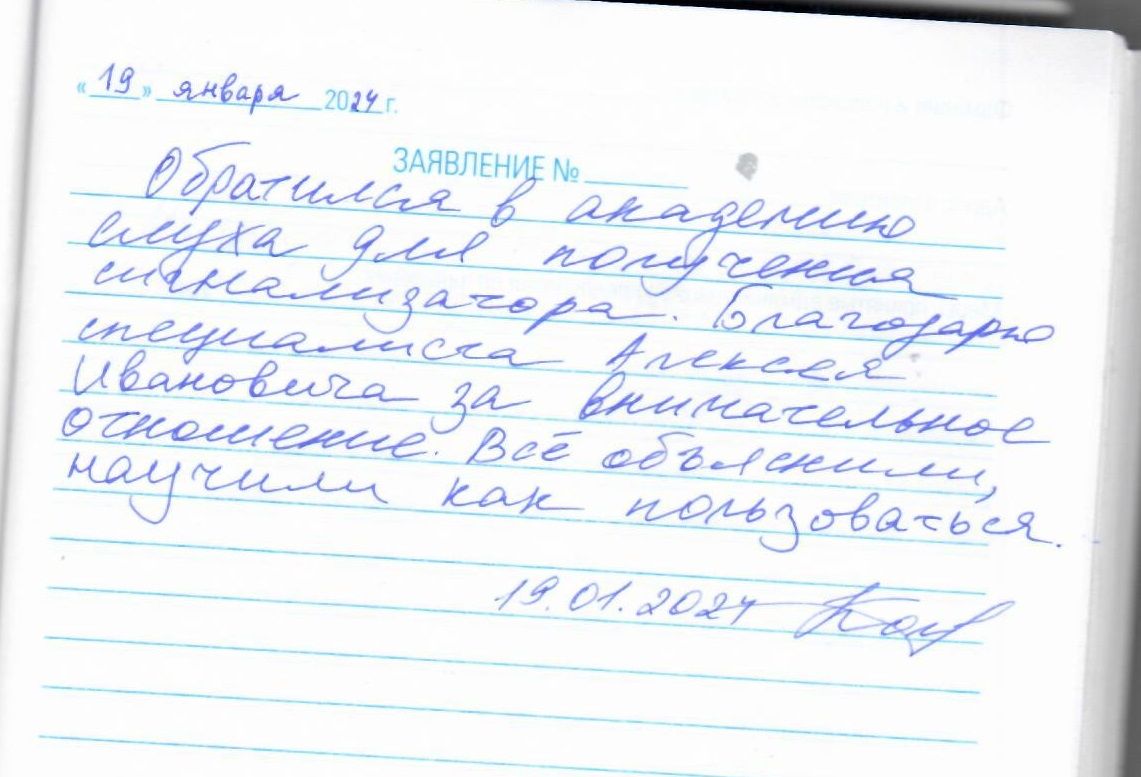 «19» января 2024 г.
ЗАЯВЛЕНИЕ №
Обратился в академию
слуха для получения
сигнализатора. Благодарю
специалиста Алексея
Ивановича за внимательное
отношение. Всё объяснили,
научили как пользоваться.
19.01.2024